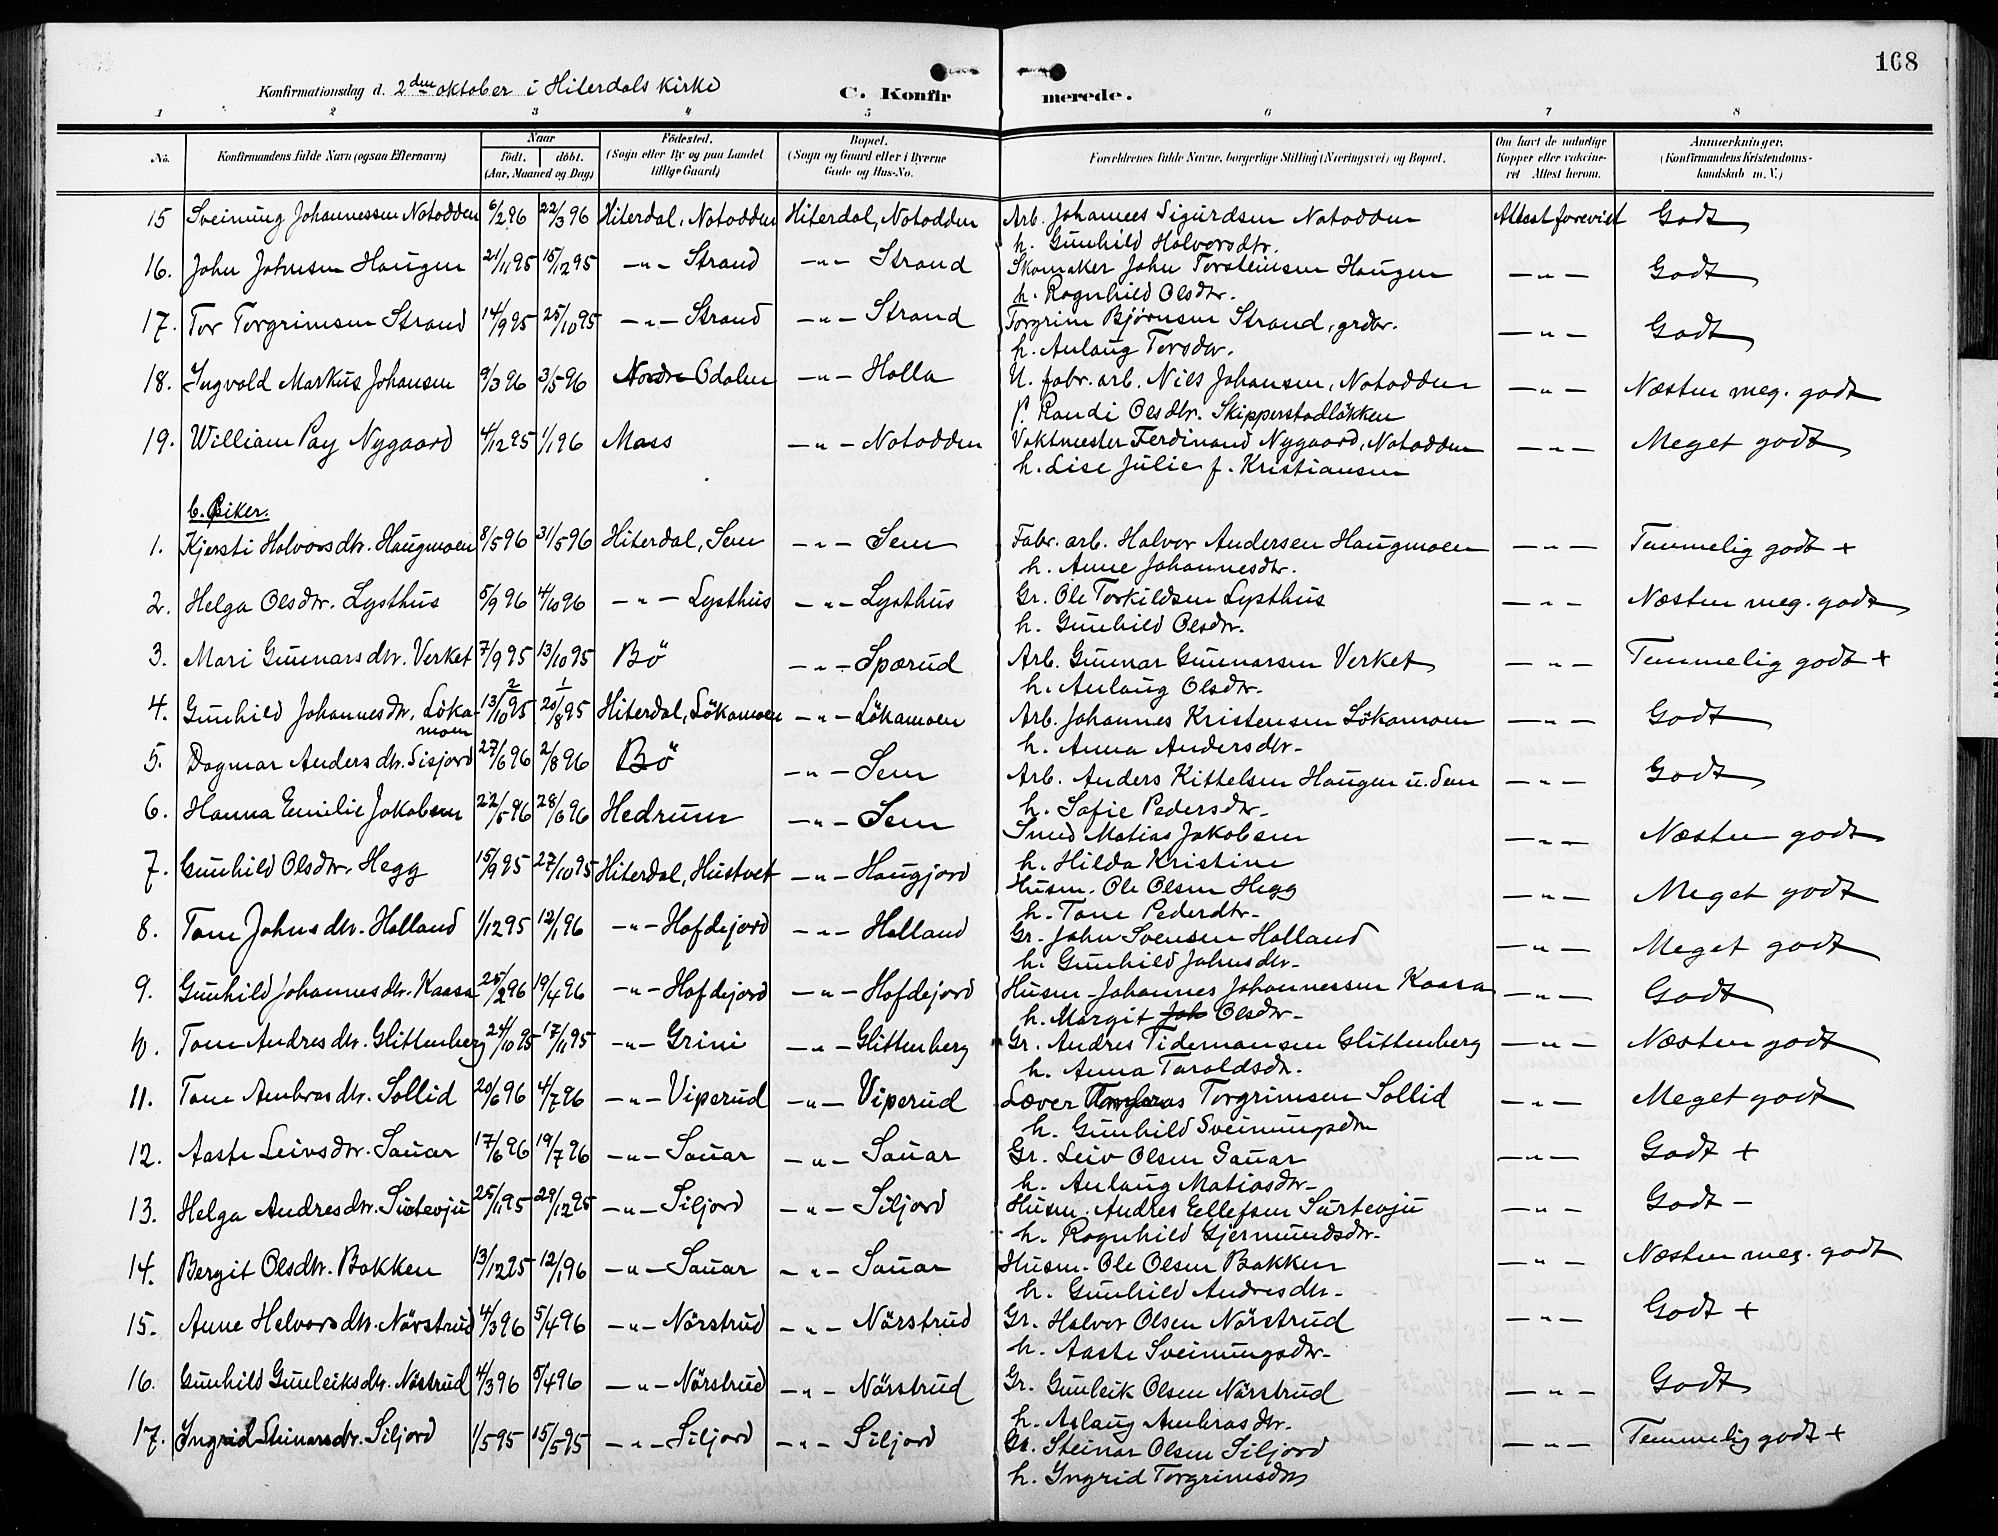 168
Konfirmationsdag d. 2den oktober i Hiterdals kirke
C. Konfirmerede.
1 2 3 4 5 6 7 8
No. Konfirmandens fulde Navn (ogsaa Efternavn) Naar født. døbt. (Aar, Maaned og Dag) Fødested. (Sogn eller By og paa Landet tillige Gaard) Bopæl. (Sogn og Gaard eller i Byerne Gade og Hus-No. Forældrenes fulde Navne, borgerlige Stilling (Næringsvei) og Bopæl. Om havt de naturlige Kopper eller vakcineret Attest herom. Anmærkninger. (Konfirmandens Kristendomskundskab m. V.)
15 Sveinung Johannessen Notodden 6/2 96 22/3 96 Hiterdal, Notodden Hiterdal, Notodden Arb. Johannes Sigurdsen Notodden Attest forevist Godt
h. Gunhild Halvorsdtr.
16. John Johnsen Haugen 21/11 95 15/12 95 -"- Strand -"- Strand Skomaker John Torsteinsen Haugen -"- Godt
h. Ragnhild Olsdtr.
17. Tor Torgrimsen Strand 14/9 95 25/10 95 -"- Strand -"- Strand Torgrim Bjørnsen Strand, grdbr. -"- Godt
h. Anlaug Torsdtr.
18. Ingvald Markus Johansen 9/3 96 3/5 96 Nordre Odalen -"- Holla U. fabr. arb. Nils Johansen, Notodden -"- Næsten meg. godt
P. Randi Olsdtr. Skipperstadløkken
19. William Pay Nygaard 4/12 95 1/1 96 Mass -"- Notodden Vaktmester Ferdinand Nygaard, Notodden -"- Meget godt
h. Lise Julie f. Kristiansen
b. Piker.
1. Kjersti Halvorsdtr. Haugmoen 8/5 96 31/5 96 Hiterdal, Sem -"- Sem Fabr. arb. Halvor Andersen Haugmoen -"- Temmelig godt +
h. Anne Johannesdtr.
2. Helga Olsdtr. Lysthus 5/9 96 4/10 96 -"- Lysthus -"- Lysthus Gr. Ole Torkildsen Lysthus -"- Næsten meg. godt
h. Gunhild Olsdtr.
3. Mari Gunnarsdtr. Verket 7/9 95 13/10 95 Bö -"- Spærud Arb. Gunnar Gunnarsen Verket -"- Temmelig godt +
h. Anlaug Olsdtr.
4. Gunhild Johannesdtr. Lökamoen 13/10 95 20/8 95 Hiterdal, Lökamoen -"- Lökamoen Arb. Johannes Kristensen Lökamoen -"- Godt
2 1
h. Anna Andersdtr.
5. Dagmar Andersdtr. Sisjord 27/6 96 2/8 96 Bö -"- Sem Arb. Anders Kittelsen Haugen u. Sem -"- Godt
h. Sofie Pedersdtr.
6. Hanna Emilie Jakobsen 22/5 96 28/6 96 Hedrum -"- Sem Smed Matias Jakobsen -"- Næsten godt
h. Hilda Kristine
7. Gunhild Olsdtr. Hegg 15/9 95 27/10 95 Hiterdal, Hustvet -"- Haugjord Husm. Ole Olsen Hegg -"- Meget godt
h. Tone Pederdtr.
8. Tone Johnsdtr. Holland 1/12 95 12/1 96 -"- Hofdejord -"- Holland Gr. John Svensen Holland -"- Meget godt
h. Gunhild Johnsdtr.
9. Gunhild Johannesdtr. Kaasa 25/2 96 19/4 96 -"- Hofdejord -"- Hofdejord Husm. Johannes Johannessen Kaasa -"- Godt
h. Margit Joh Olsdtr.
10. Tone Andresdtr. Glittenberg 24/10 95 17/11 95 -"- Grini -"- Glittenberg Gr. Andres Tidemansen Glittenberg -"- Næsten godt
h. Anna Taraldsdtr.
11. Tone Ambrosdtr. Sollid 20/6 96 4/7 96 -"- Viperud -"- Viperud Læver Torgrimsen Sollid -"- Meget godt
h. Gunhild Sveinungsdtr
12. Aaste Leivsdtr. Sauar 17/6 96 19/7 96 -"- Sauar -"- Sauar Gr. Leiv Olsen Sauar -"- Godt +
h. Anlaug Matiasdtr.
13. Helga Andresdtr. Surtevju 25/11 95 29/12 95 -"- Siljord -"- Siljord Husm. Andres Ellefsen Surtevju -"- Godt -
h. Ragnhild Gjermundsdtr.
14. Bergit Olsdtr. Bakken 13/12 95 12/1 96 -"- Sauar -"- Sauar Husm. Ole Olsen Bakken -"- Næsten meg. godt
h. Gunhild Andresdtr.
15. Anne Halvorsdtr. Nörstrud 4/3 96 5/4 96 -"- Nörstrud -"- Nörstrud Gr. Halvor Olsen Nörstrud -"- Godt +
h. Aaste Sveinungsdtr.
16. Gunhild Gunleiksdtr. Nöstrud 4/3 96 5/4 96 -"- Nörstrud -"- Nörstrud Gr. Gunleik Olsen Nörstrud -"- Godt
h. Aslaug Ambrosdtr.
17. Ingrid Steinarsdtr. Siljord 1/5 95 15/5 95 -"- Siljord -"- Siljord Gr. Steinar Olsen Siljord -"- Temmelig godt +
h. Ingrid Torgrimsdtr